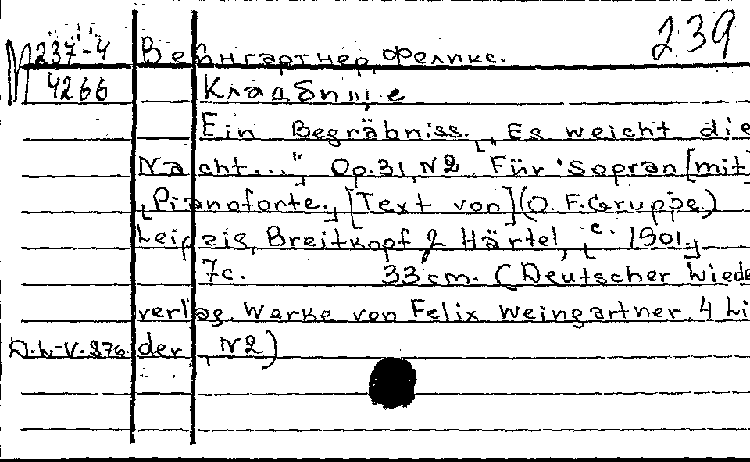 239
М 237-4 Вейнгартнер, Феликс.
4266 Кладбище
Ein Begräbniss. „Es weicht die
Nacht...", Op.31, N2. Für Sopran [mit
Pianoforte.] [Text von] (O. F. Gruppe.)
Leipzig, Breitkopf & Härtel, [c. 1901.]
7с. 33 cm. (Deutscher Liede
verlag. Werke von Felix Weingartner. 4 Li
D.L-V.876. der, N2)